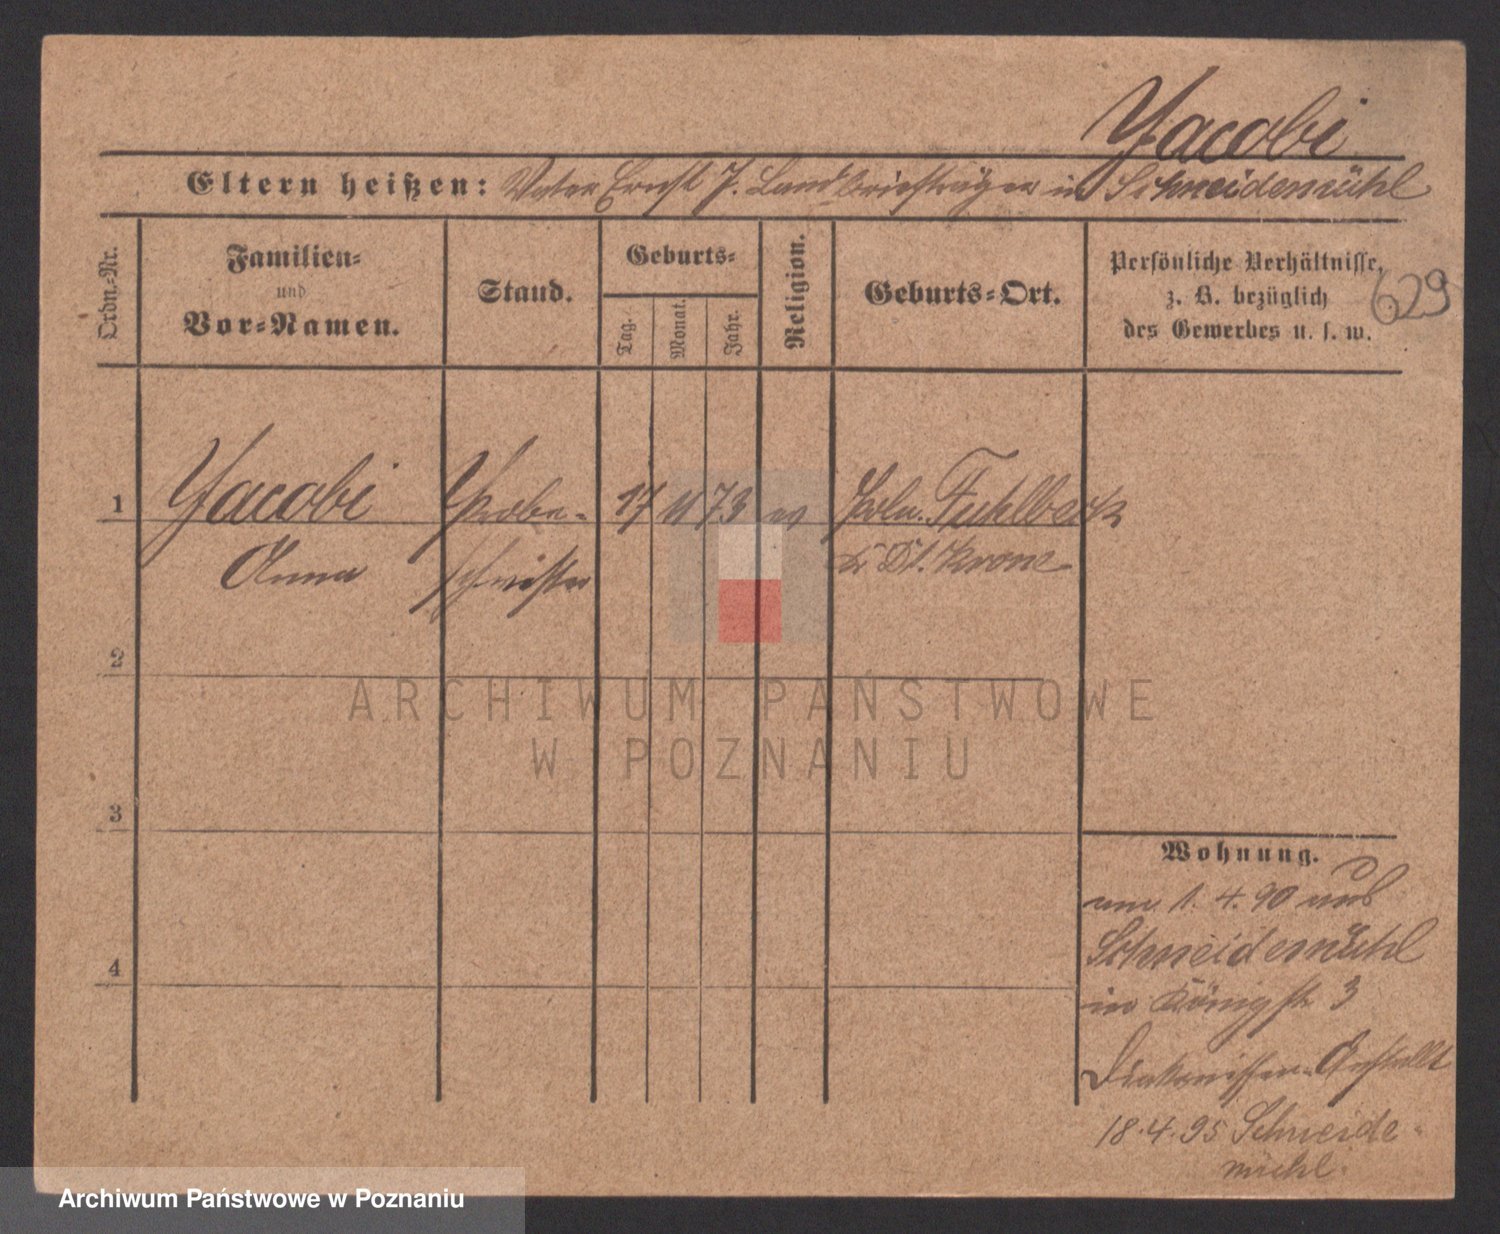 Jacobi
Eltern heißen: Vater Ernst J. Landbriefträger in Schneidemühl
Ordn.-Nr.
Familien-
und
Vor-Namen.
Stand.
Geburts-
Tag.
Monat.
Jahr.
Religion.
Geburts-Ort.
Persönliche Verhältnisse,
z. B. bezüglich
des Gewerbes u. s. w.
629
1 Jacobi Probe- 17 11 73 ev Koln. Fuhlbeck
Anna schwester Kr Dt. Krone
2
3
4
Wohnung.
am 1. 4. 90 aus
Schneidemühl
in Königstr 3
Diakonissen-Anstallt
18.4.95 Schneide-
mühl.
ARCHIWUM PAŃSTWOWE
W POZNANIU
Archiwum Państwowe w Poznaniu